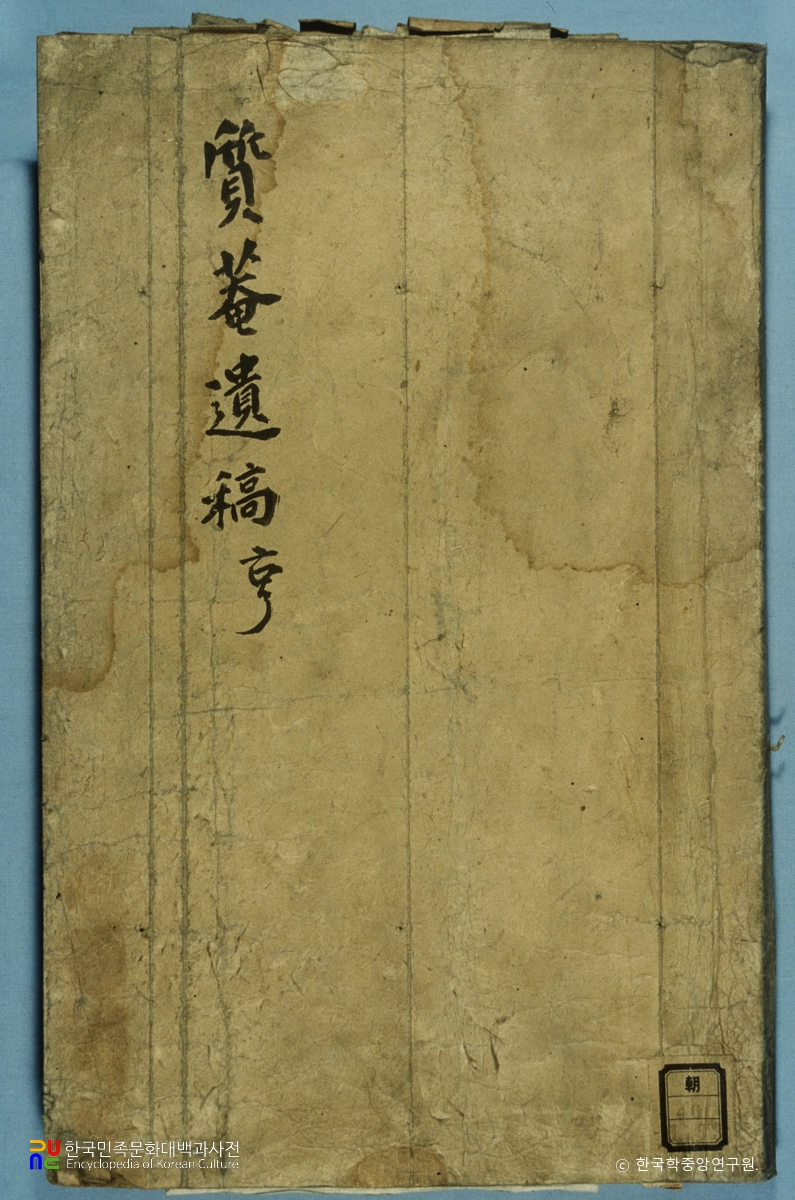 質菴遺稿 亨
朝
한국민족문화대백과사전
Encyclopedia of Korean Culture
© 한국학중앙연구원